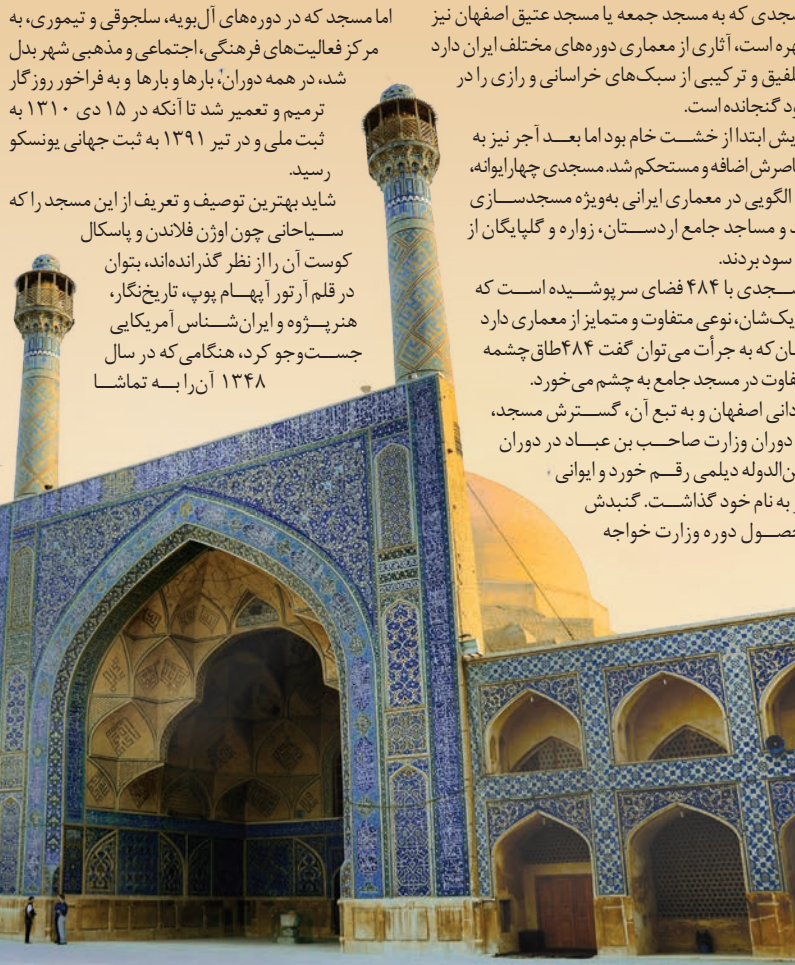 سجدی که به مسجد جمعه یا مسجد عتیق اصفهان نیز
هره است، آثاری از معماری دوره‌های مختلف ایران دارد
لفیق و ترکیبی از سبک‌های خراسانی و رازی را در
ود گنجانده است.
یش ابتدا از خشت خام بود اما بعد آجر نیز به
ناصرش اضافه و مستحکم شد. مسجدی چهارایوانه،
الگویی در معماری ایرانی به‌ویژه مسجدسازی
د و مساجد جامع اردستان، زواره و گلپایگان از
سود بردند.
سجدی با ۴۸۴ فضای سرپوشیده است که
یک‌شان، نوعی متفاوت و متمایز از معماری دارد
سان که به جرأت می‌توان گفت ۴۸۴طاق چشمه
فاوت در مسجد جامع به چشم می‌خورد.
ادانی اصفهان و به تبع آن، گسترش مسجد،
دوران وزارت صاحب بن عباد در دوران
ن‌الدوله دیلمی رقم خورد و ایوانی
به نام خود گذاشت. گنبدش
حصول دوره وزارت خواجه
اما مسجد که در دوره‌های آل‌بویه، سلجوقی و تیموری، به
مرکز فعالیت‌های فرهنگی، اجتماعی و مذهبی شهر بدل
شد، در همه دوران، بارها و بارها و به فراخور روزگار
ترمیم و تعمیر شد تا آنکه در ۱۵ دی ۱۳۱۰ به
ثبت ملی و در تیر ۱۳۹۱ به ثبت جهانی یونسکو
رسید.
شاید بهترین توصیف و تعریف از این مسجد را که
سیاحانی چون اوژن فلاندن و پاسکال
کوست آن را از نظر گذرانده‌اند، بتوان
در قلم آرتور آپهام پوپ، تاریخ‌نگار،
هنرپژوه و ایران‌شناس آمریکایی
جست‌وجو کرد، هنگامی که در سال
۱۳۴۸ آن را به تماشا